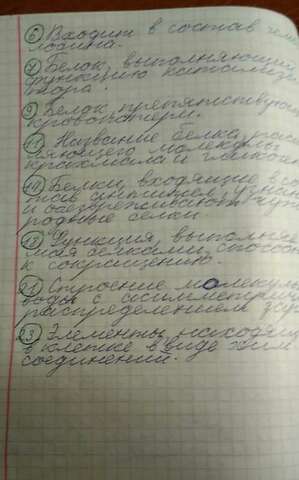 6 Входит в состав гемо
глобина.
7 Белок, выполняющий
функцию катализа
тора.
9 Белок препятствую
кровопотери.
11 Название белка, рас
ляющего молекулы
крахмала и гликоге
14 Белки, входящие в с
тав антител, узн
и обезвреживают чуж
родные белки
18 Функция, выполняе
мая белками, способн
к сокращению.
21 Строение молекул
воды с асимметрич
распределением зар
23 Элементы, находящ
в клетке в виде хим
соединений.